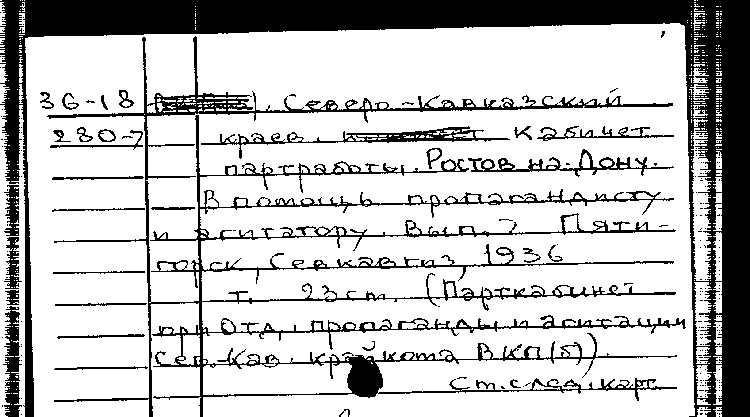 36-18 Северо-Кавказский
280-7 краев. Кабинет
партработы. Ростов на-Дону.
В помощь пропагандисту
и агитатору. Вып. 7 Пяти-
горск, Севкавгиз, 1936
т. 23 cm. (Парткабинет
при Отд. пропаганды и агитации
Сев.-Кав. крайкома ВКП(б)).
См. след. карт.